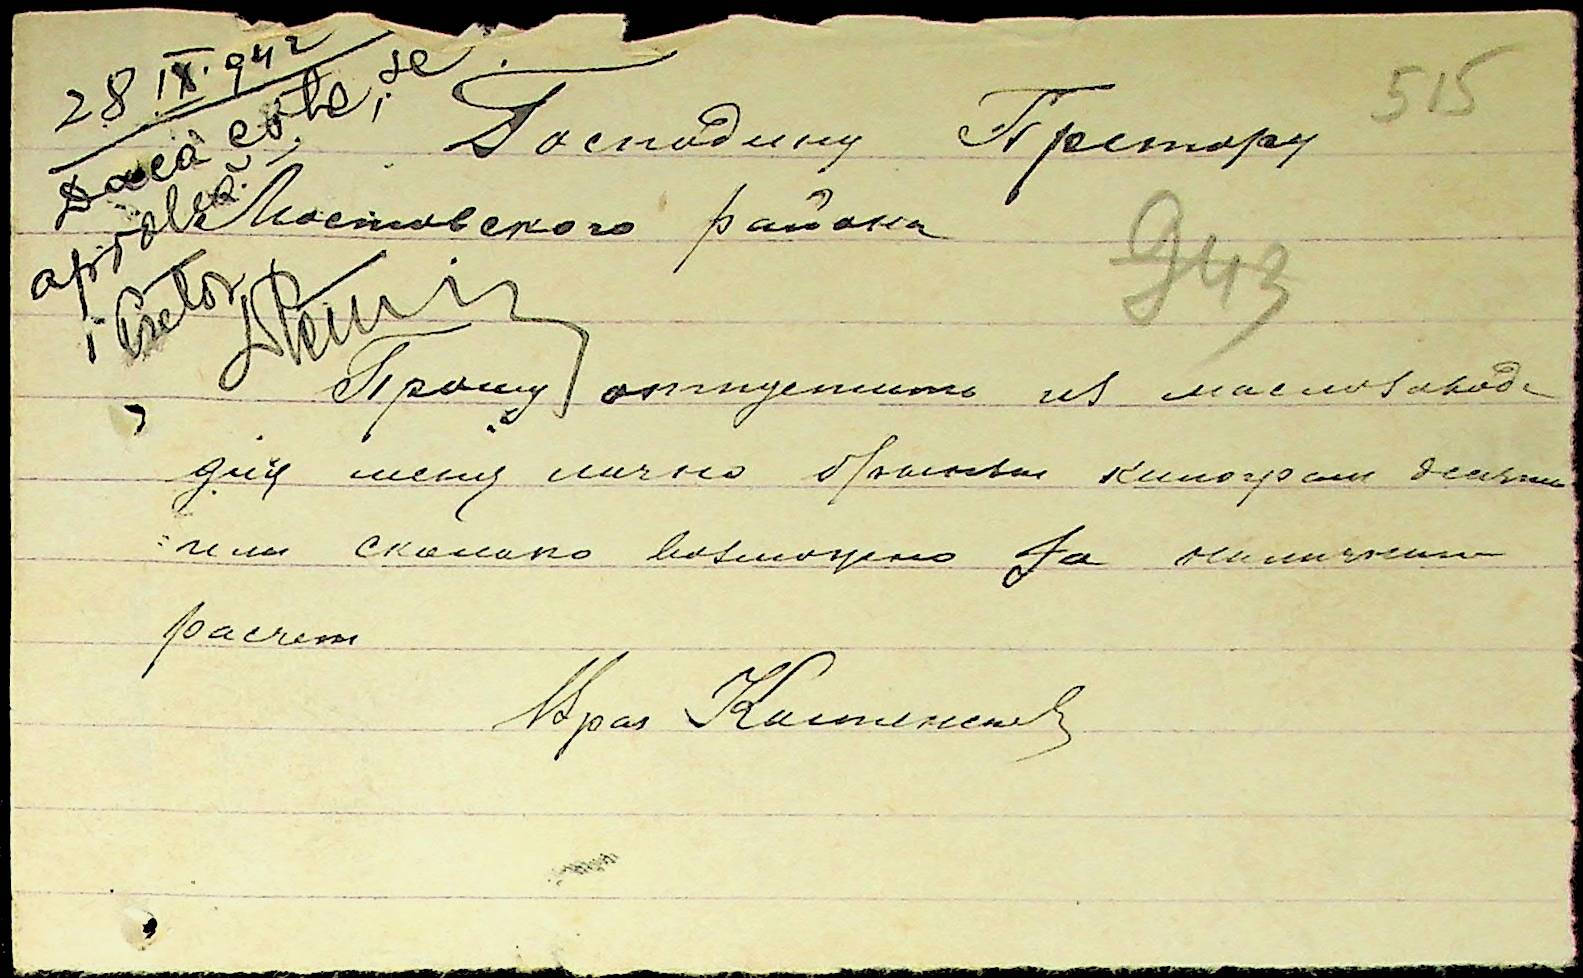 28 IX. 942
Dacă este, se
aprobă.
Pretor
515
Господину Претору
Мостовского района
943
Прошу отпустить из маслозавода
для меня лично брынзы килограм десять
или сколько возможно за наличный
расчет
Врач